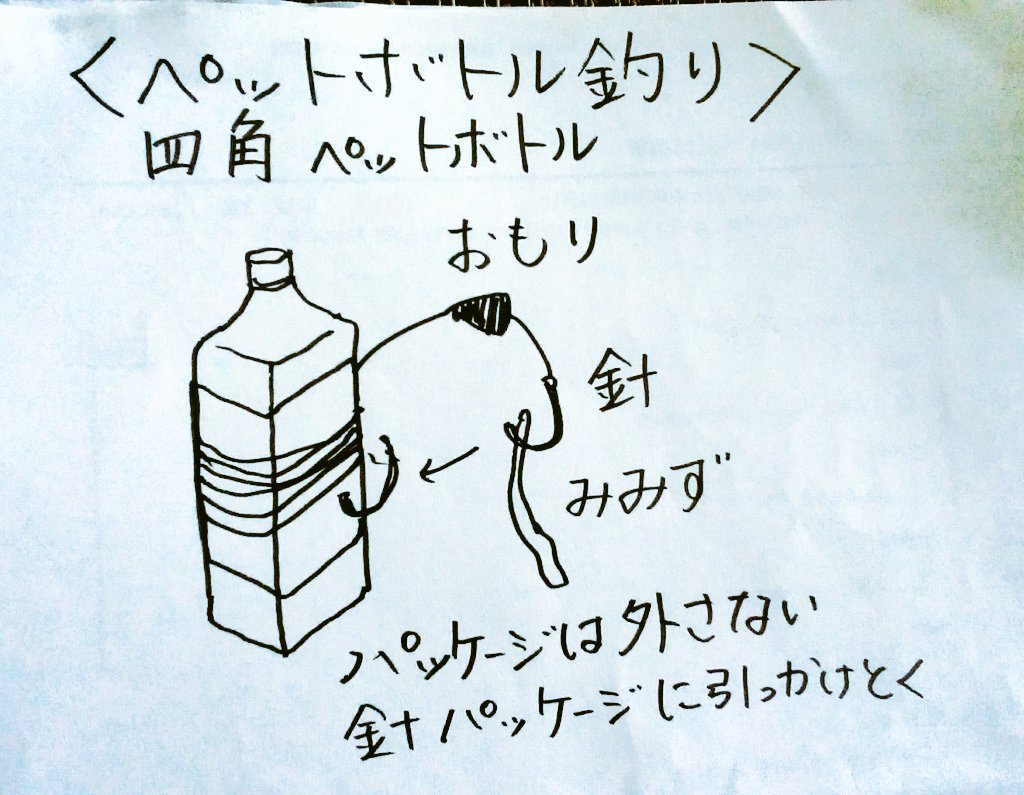 <ペットボトル釣り>
四角 ペットボトル
おもり
針
みみず
パッケージは外さない
針パッケージに引っかけとく